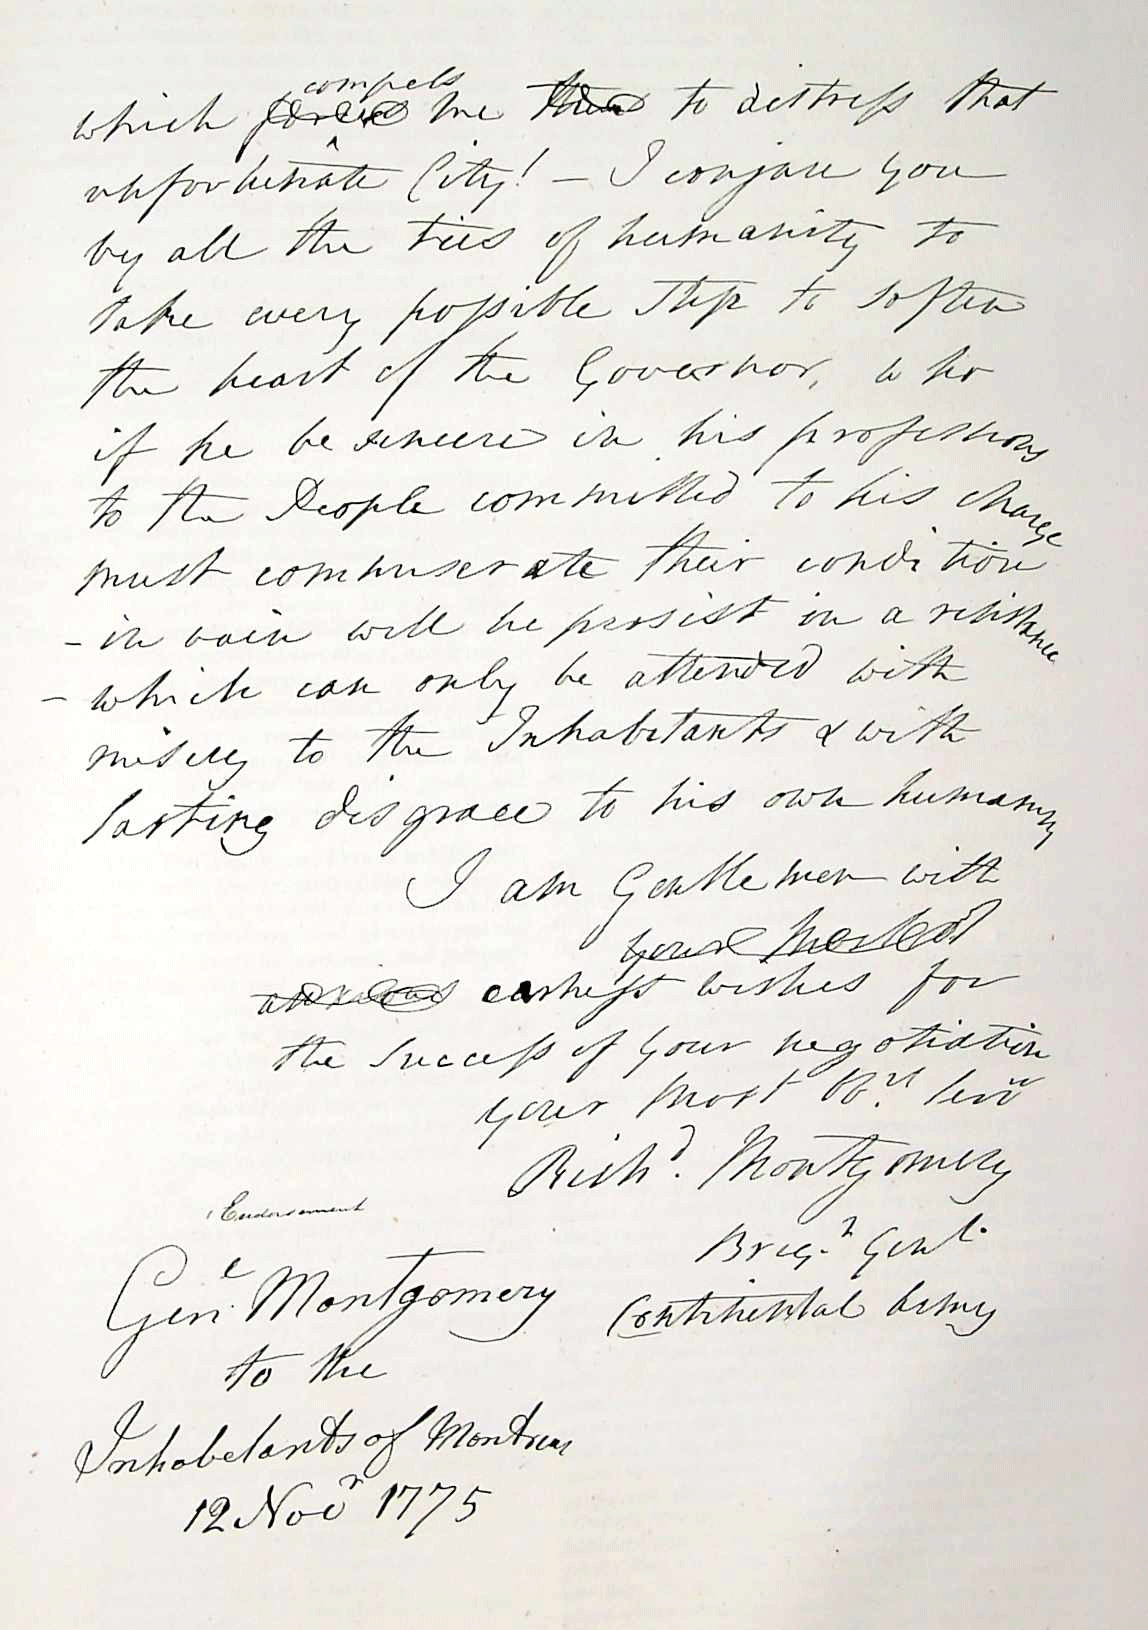 compels
which forces me thus to distress that
unfortunate City! – I conjure you
by all the ties of humanity to
take every possible Step to soften
the heart of the Governor, who
if he be sincere in his professions
to the People committed to his charge
must commiserate their condition
– in vain will he persist in a resistance
– which can only be attended with
misery to the Inhabitants & with
lasting disgrace to his own humanity
I am Gentlemen with
your
anxious earnest wishes for
the success of your negotiation
your most Obt. Servt
Richd. Montgomery
Brigr Genl.
Continental Army
Endorsement
Genl Montgomery
to the
Inhabetants of Montreal
12 Novr 1775